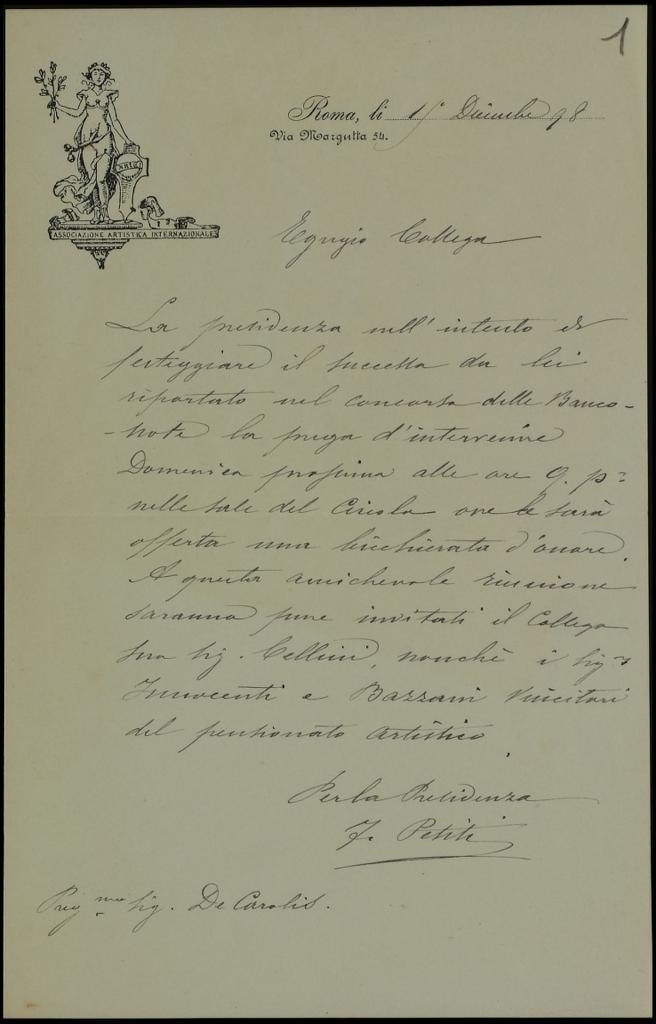 1
Roma, li 15 Dicembre 98
Via Margutta 54.
ASSOCIAZIONE ARTISTICA INTERNAZIONALE
Egregio Collega
La presidenza nell'intento di
festeggiare il successo da lei
riportato nel concorso delle Banco-
-note la prega d'intervenire
Domenica prossima alle ore 9. p=
nelle sale del Circolo ove le sarà
offerta una bicchierata d'onore.
A questa amichevole riunione
saranno pure invitati il Collega
suo sig. Cellini, nonchè i sigri
Innocenti e Bazzani vincitori
del pensionato artistico.
Per la Presidenza
F. Petiti
Pregmo sig. De Carolis.